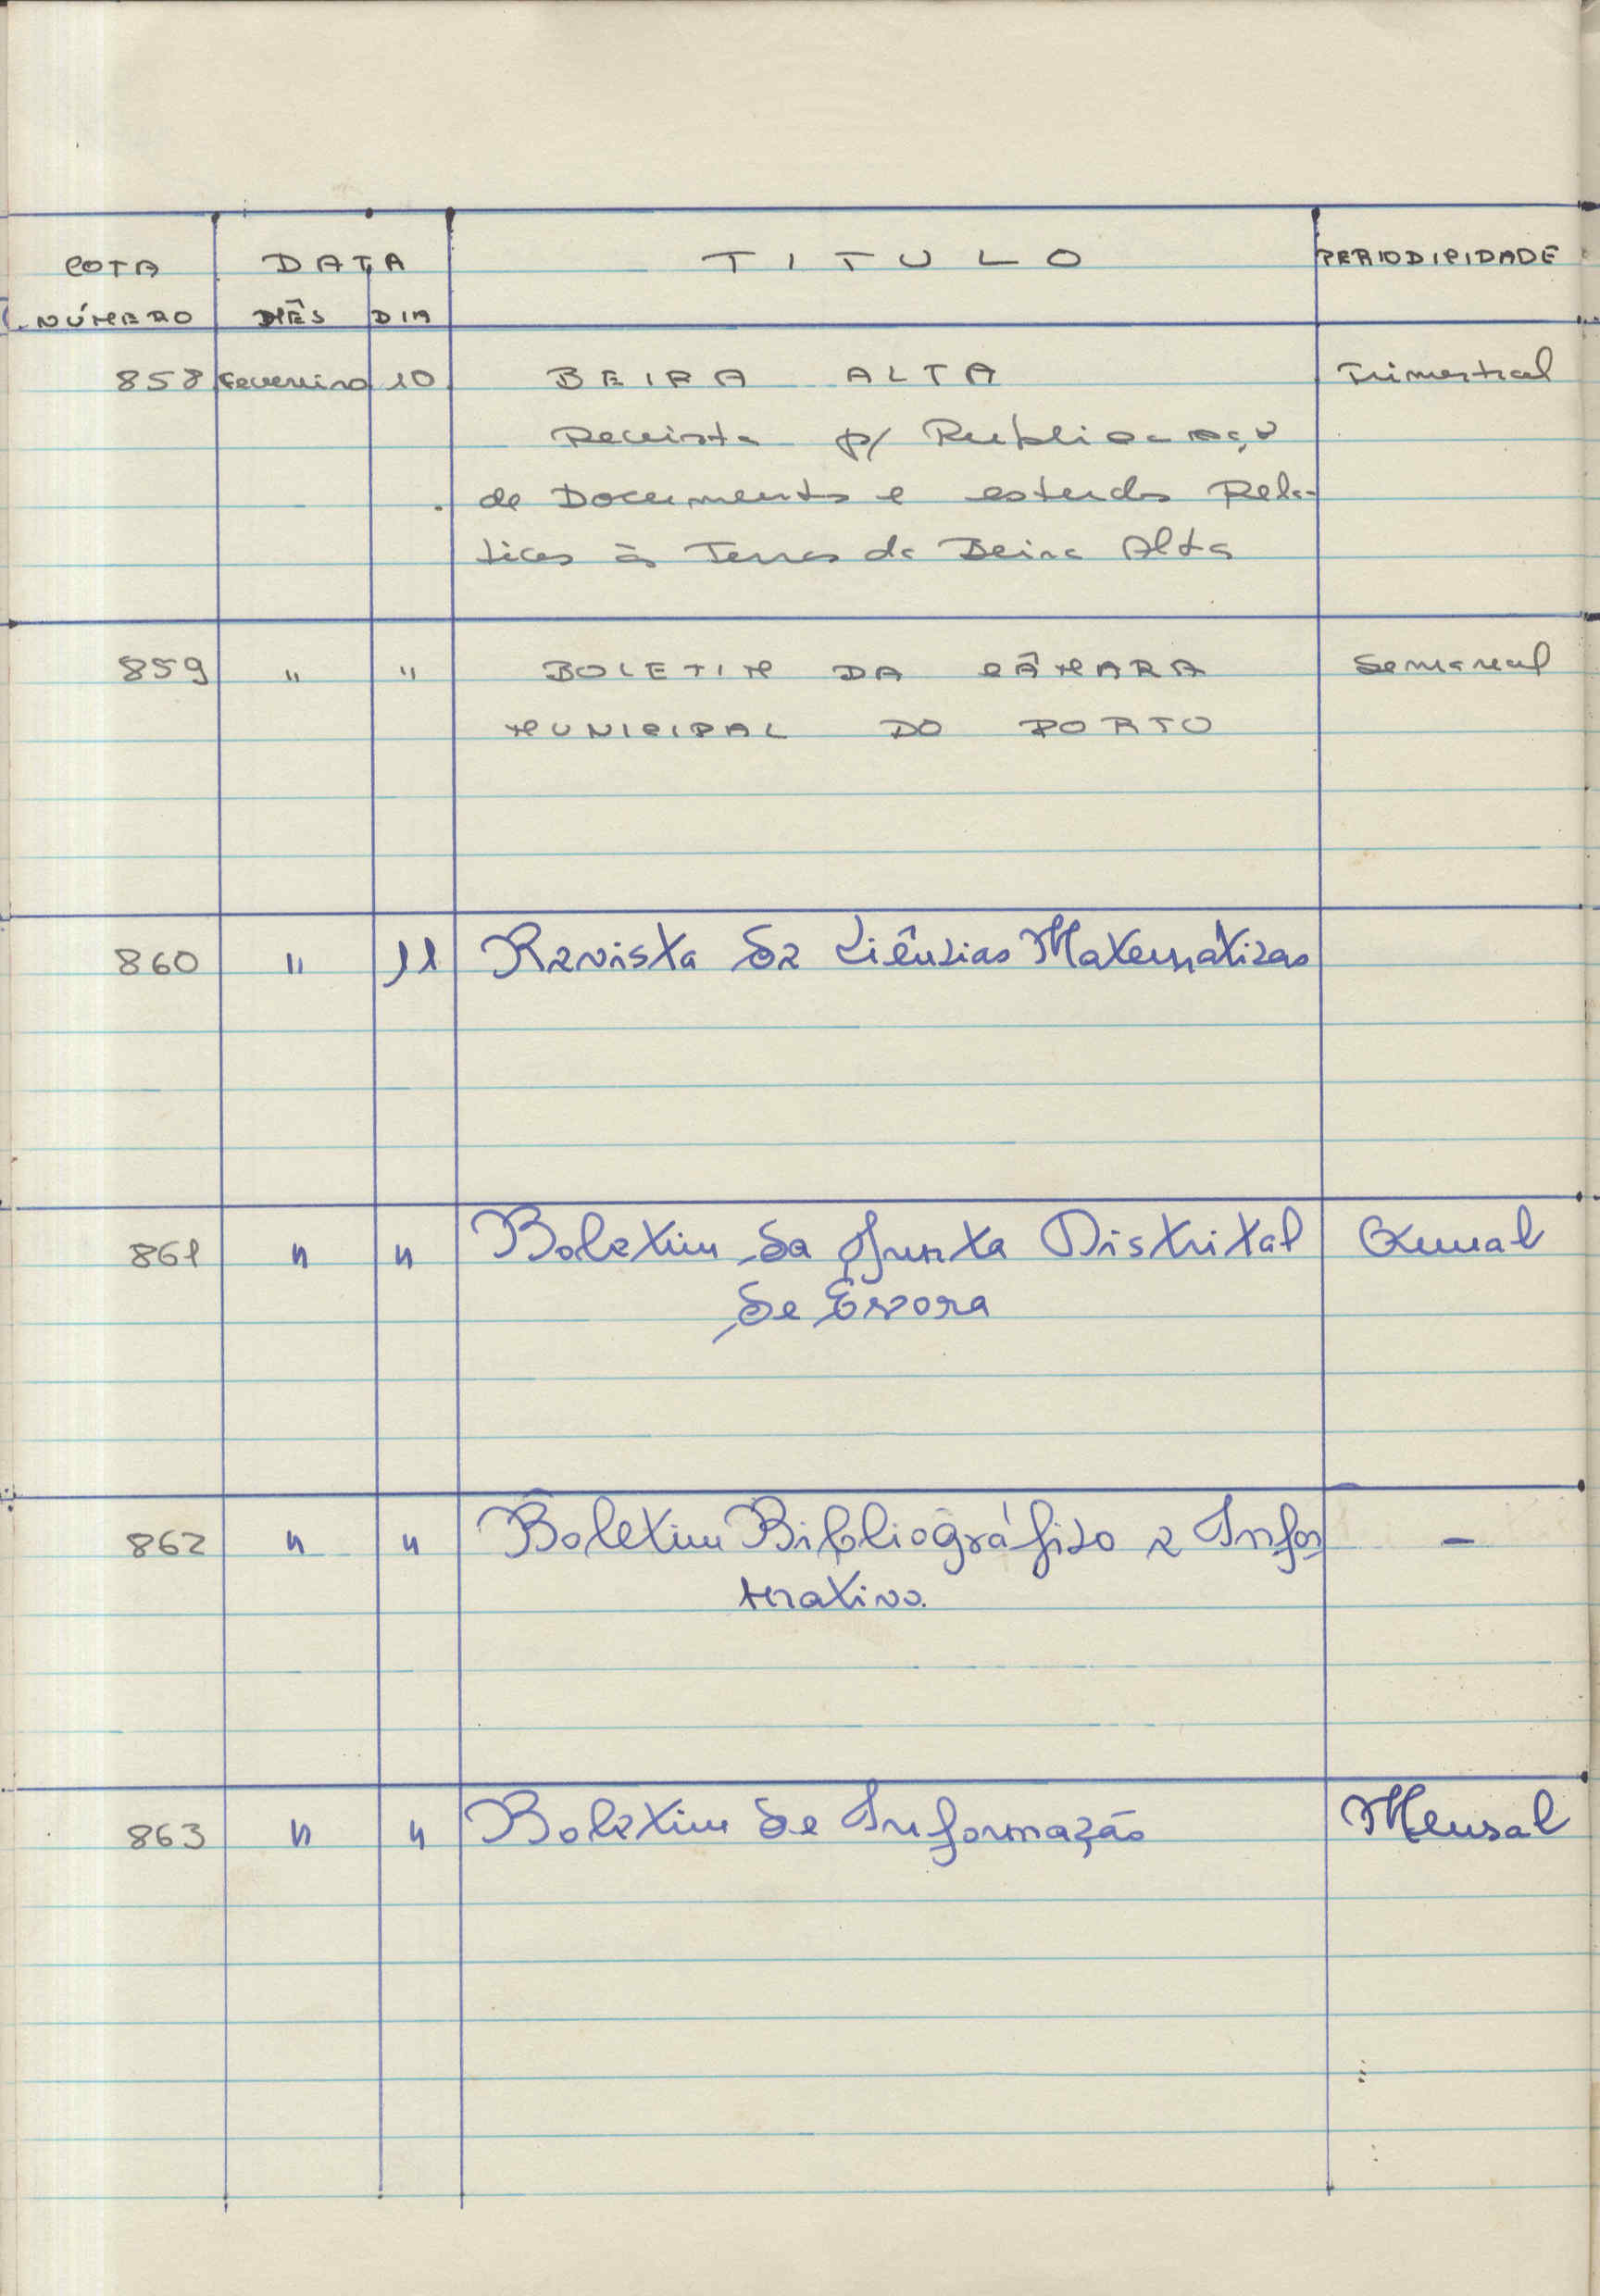 COTA DATA TITULO PERIODICIDADE
NÚMERO MÊS DIA
858 Fevereiro 10 BEIRA ALTA Trimestral
Revista p/ Publicação
de Documentos e estudos Rela-
tivos às Terras da Beira Alta
859 " " BOLETIM DA CÂMARA Semanal
MUNICIPAL DO PORTO
860 " 11 Revista de Ciências Matemáticas
861 " " Boletim da Junta Distrital Anual
de Évora
862 " " Boletim Bibliográfico e Infor -
mativo.
863 " " Boletim de Informação Mensal